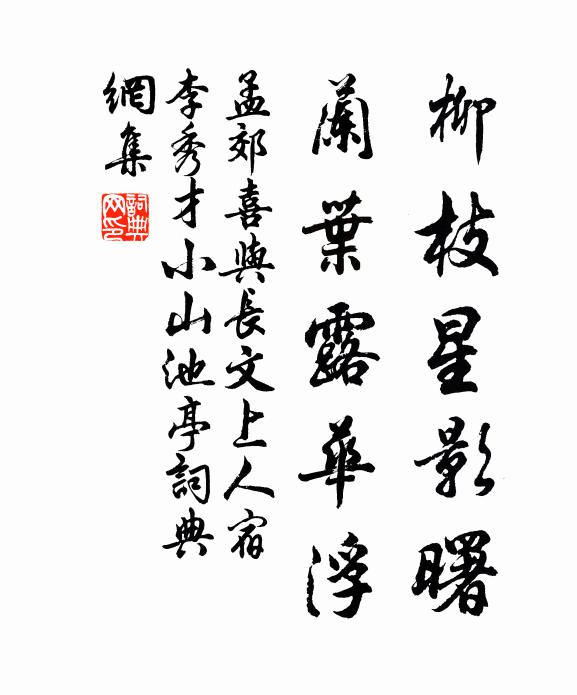 柳枝星影曙
蘭葉露華浮
孟郊喜與長文上人宿
李秀才小山池亭詞典
網集
詞典
网印